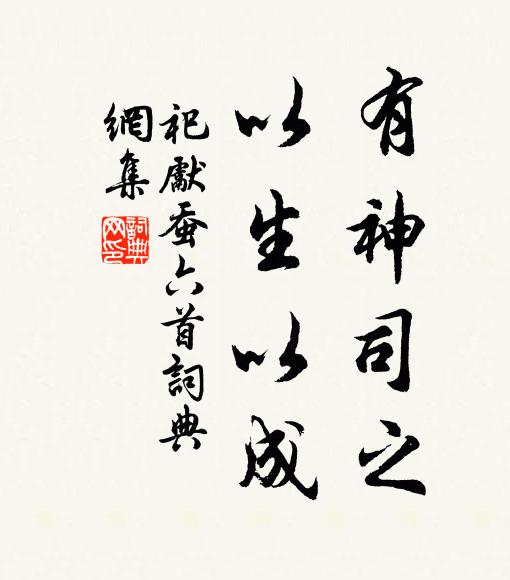 有神司之
以生以成
祀獻蚕六首詞典
網集
詞典網印